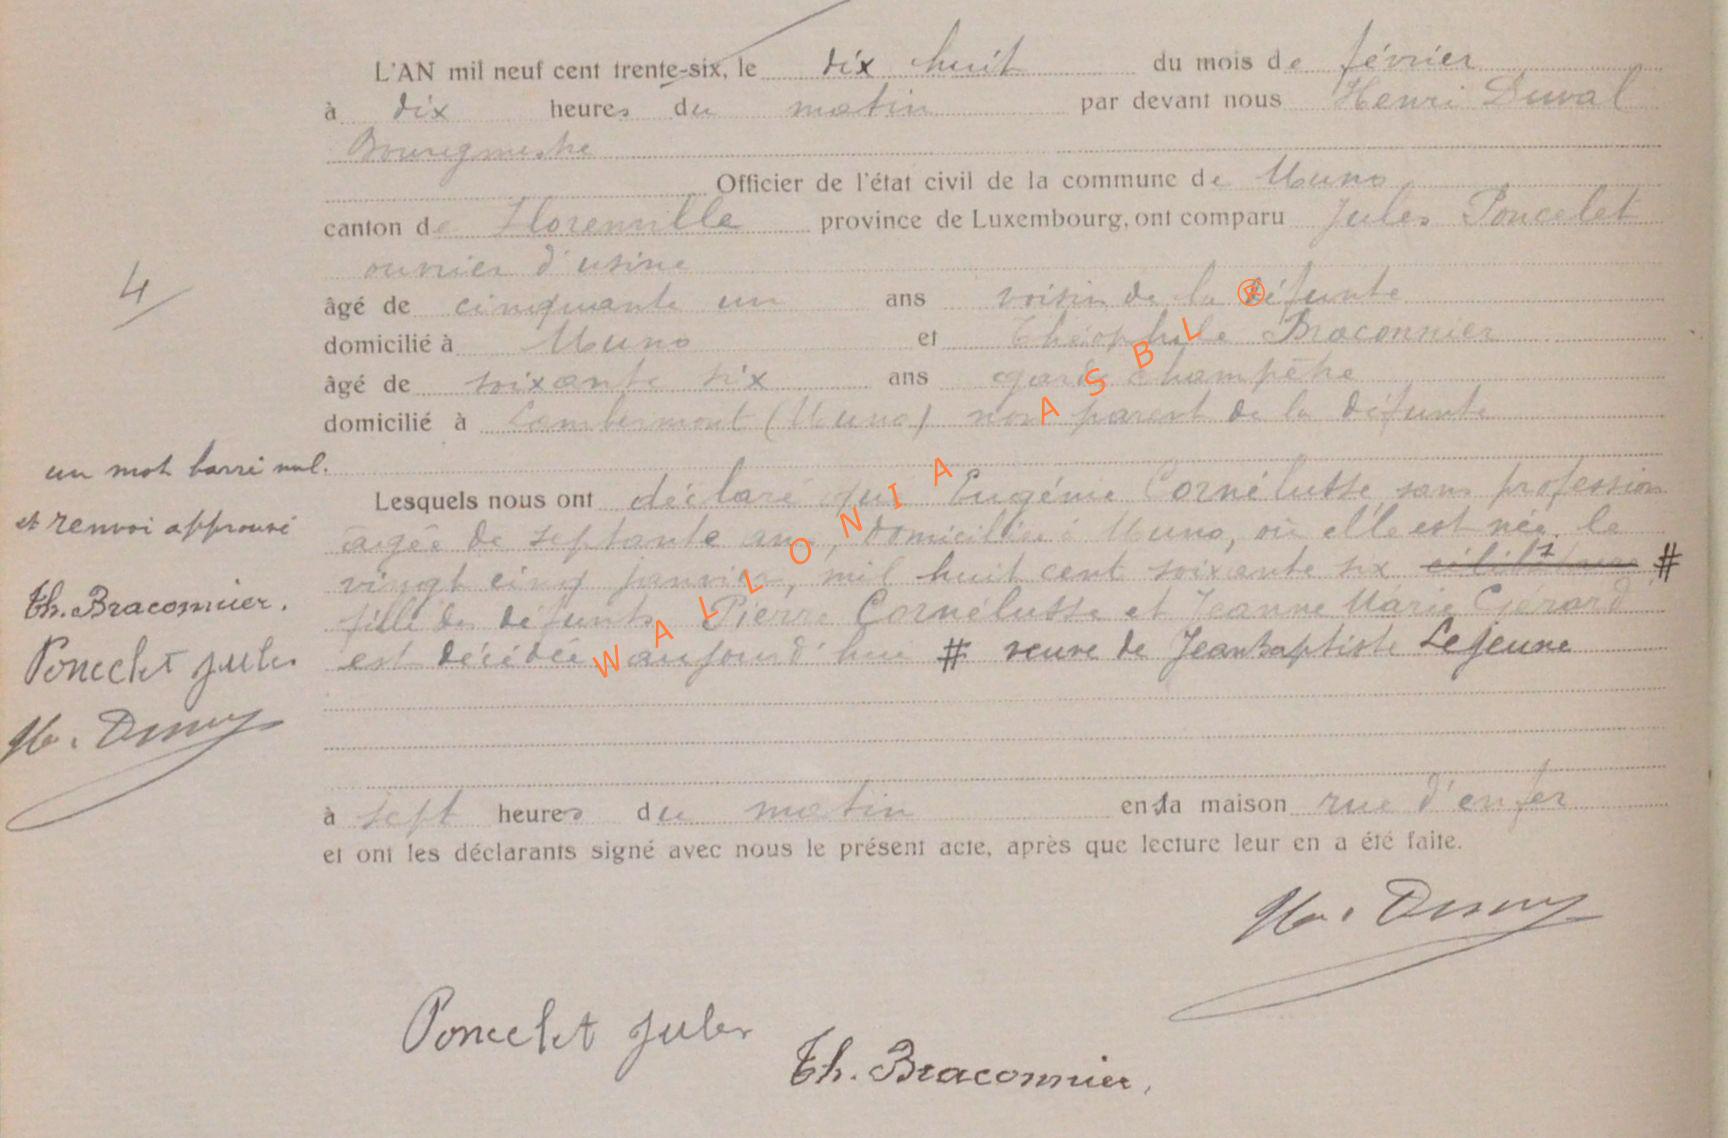 L'AN mil neuf cent trente-six, le dix huit du mois de février
à dix heures du matin par devant nous Henri Duval
Bourgmestre
Officier de l'état civil de la commune de Muno
canton de Florenville province de Luxembourg, ont comparu Jules Poncelet
ouvrier d'usine
âgé de cinquante un ans voisin de la défunte
domicilié à Muno et Théophile Braconnier
âgé de soixante six ans garde champêtre
domicilié à Lambermont (Muno) non parent de la défunte
Lesquels nous ont déclaré que Eugénie Cornélusse sans profession
âgée de septante ans, domiciliée à Muno, où elle est née le
vingt cinq janvier, mil huit cent soixante six #
fille des défunts Pierre Cornélusse et Jeanne Marie Gérard
est décédée aujourd'hui # veuve de Jean Baptiste Lejeune
à sept heures du matin en sa maison rue d'enfer
et ont les déclarants signé avec nous le présent acte, après que lecture leur en a été faite.
4
un mot barré nul.
et renvoi approuvé
Th. Braconnier.
Poncelet Jules
H. Duval
H. Duval
Poncelet Jules
Th. Braconnier.
WALLONIA ASBL ®